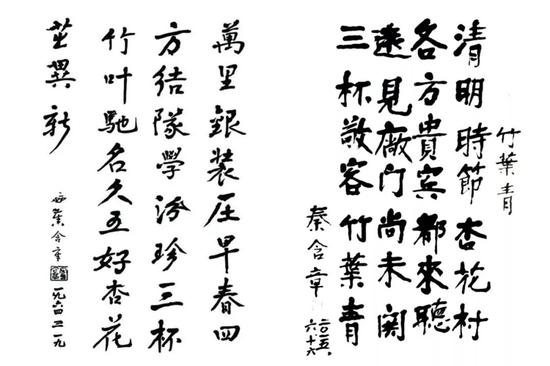 竹葉青
清明時節杏花村
各方貴宾都來聽
遠見廠门尚未関
三杯敬客竹葉青
秦含章
六十六
萬里銀装压早春四
方結隊學汾珍三杯
竹叶馳名久五好杏花
茁異新
含章
一九六四